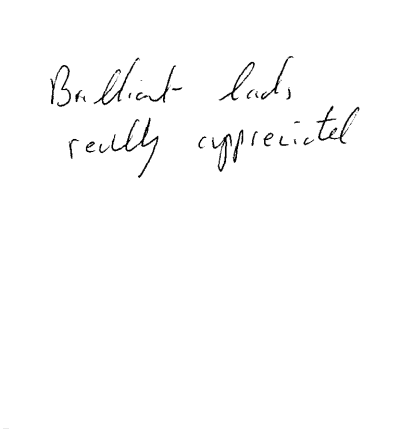 Brilliant lads,
really appreciated